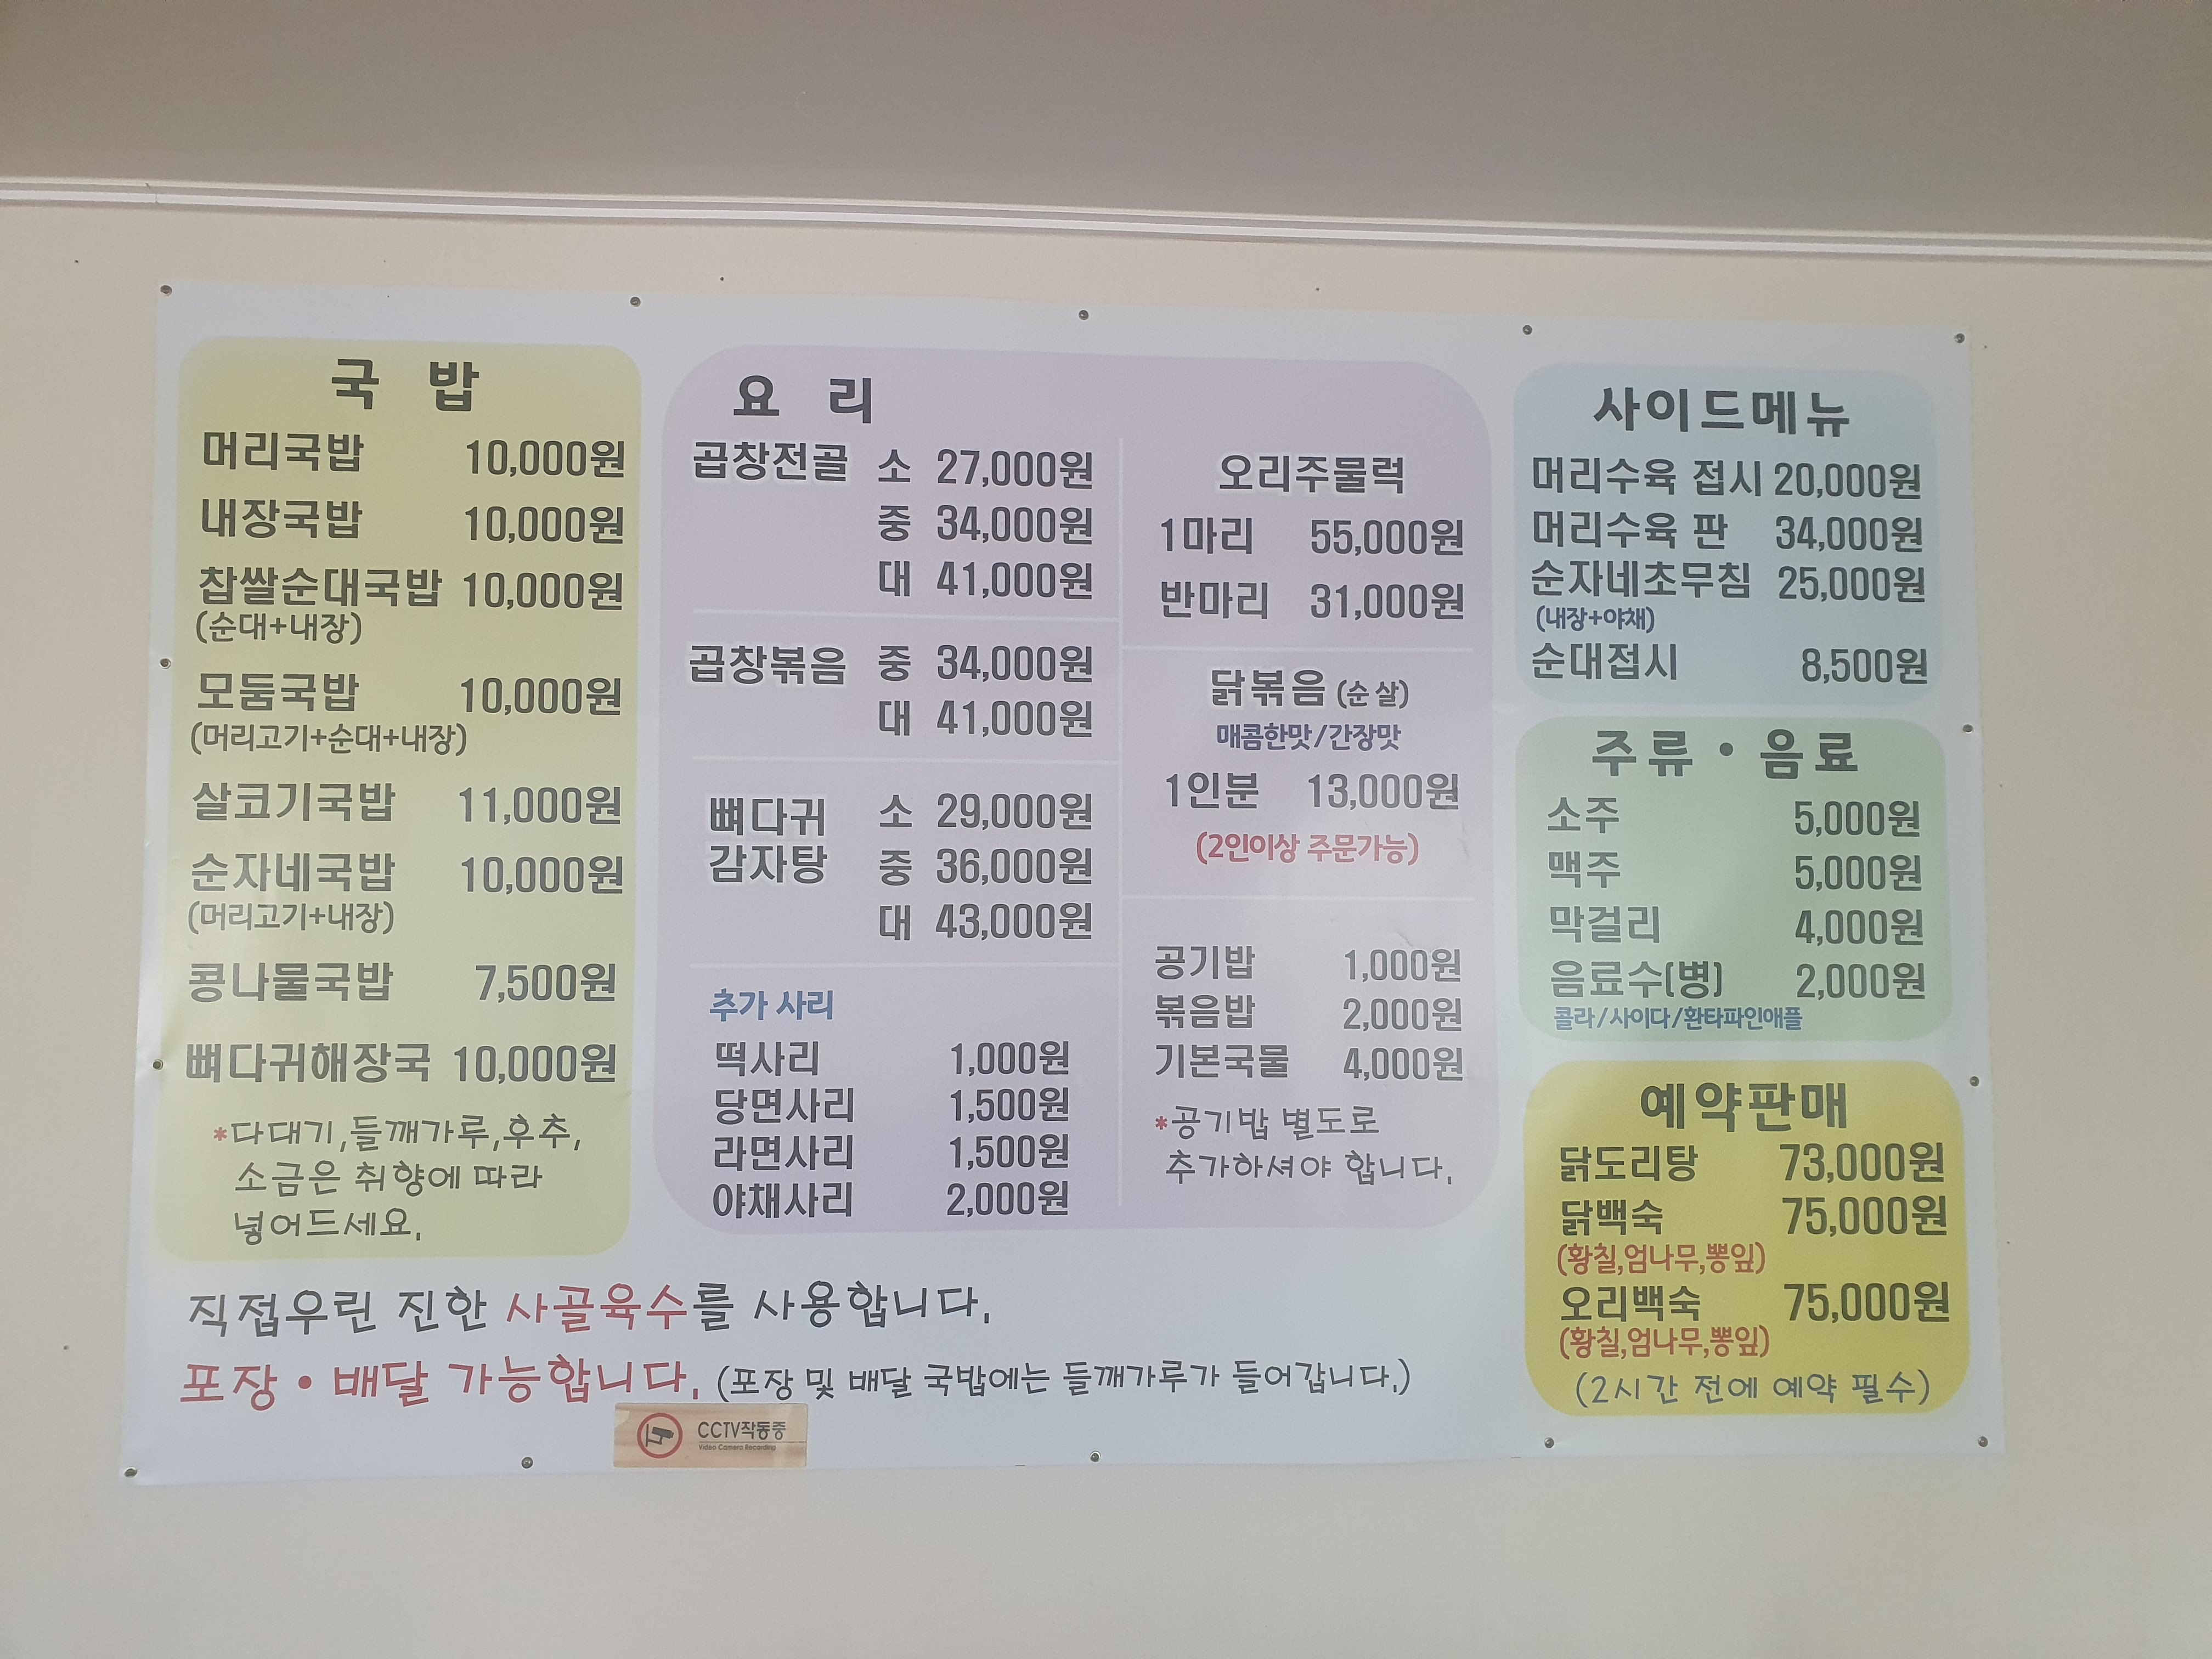 국 밥
머리국밥 10,000원
내장국밥 10,000원
찹쌀순대국밥 10,000원
(순대+내장)
모둠국밥 10,000원
(머리고기+순대+내장)
살코기국밥 11,000원
순자네국밥 10,000원
(머리고기+내장)
콩나물국밥 7,500원
뼈다귀해장국 10,000원
*다대기,들깨가루,후추,
소금은 취향에 따라
넣어드세요.
요 리
곱창전골 소 27,000원
중 34,000원
대 41,000원
곱창볶음 중 34,000원
대 41,000원
뼈다귀 소 29,000원
감자탕 중 36,000원
대 43,000원
추가 사리
떡사리 1,000원
당면사리 1,500원
라면사리 1,500원
야채사리 2,000원
오리주물럭
1마리 55,000원
반마리 31,000원
닭볶음 (순 살)
매콤한맛/간장맛
1인분 13,000원
(2인이상 주문가능)
공기밥 1,000원
볶음밥 2,000원
기본국물 4,000원
*공기밥 별도로
추가하셔야 합니다.
사이드메뉴
머리수육 접시 20,000원
머리수육 판 34,000원
순자네초무침 25,000원
(내장+야채)
순대접시 8,500원
주류 • 음료
소주 5,000원
맥주 5,000원
막걸리 4,000원
음료수(병) 2,000원
콜라/사이다/환타파인애플
예약판매
닭도리탕 73,000원
닭백숙 75,000원
(황칠,엄나무,뽕잎)
오리백숙 75,000원
(황칠,엄나무,뽕잎)
(2시간 전에 예약 필수)
직접우린 진한 사골육수를 사용합니다.
포장 • 배달 가능합니다. (포장 및 배달 국밥에는 들깨가루가 들어갑니다.)
CCTV작동중
Video Camera Recording